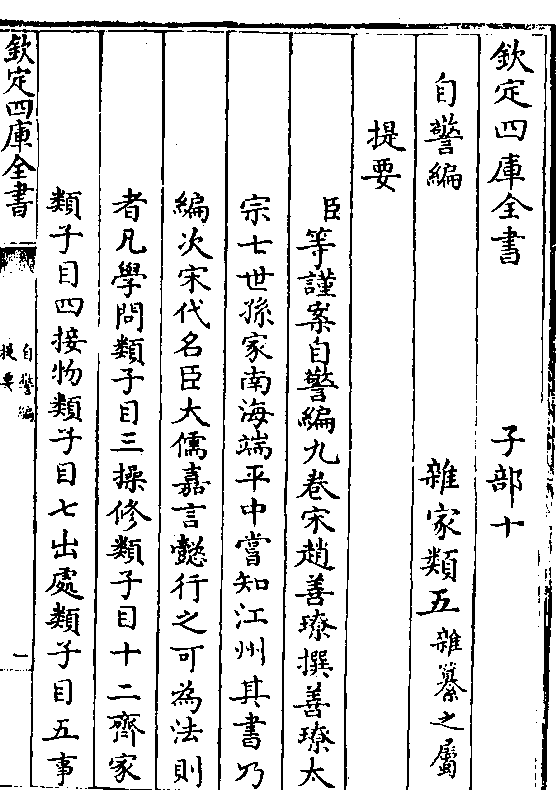 欽定四庫全書　子部十
自警編　雜家類五雜纂之屬
提要
臣等謹案自警編九卷宋趙善璙撰善璙太
宗七世孫家南海端平中嘗知江州其書乃
編次宋代名臣大儒嘉言懿行之可為法則
者凡學問類子目三操修類子目十二齊家
類子目四接物類子目七出處類子目五事
欽定四庫全書
自警編
提要
一